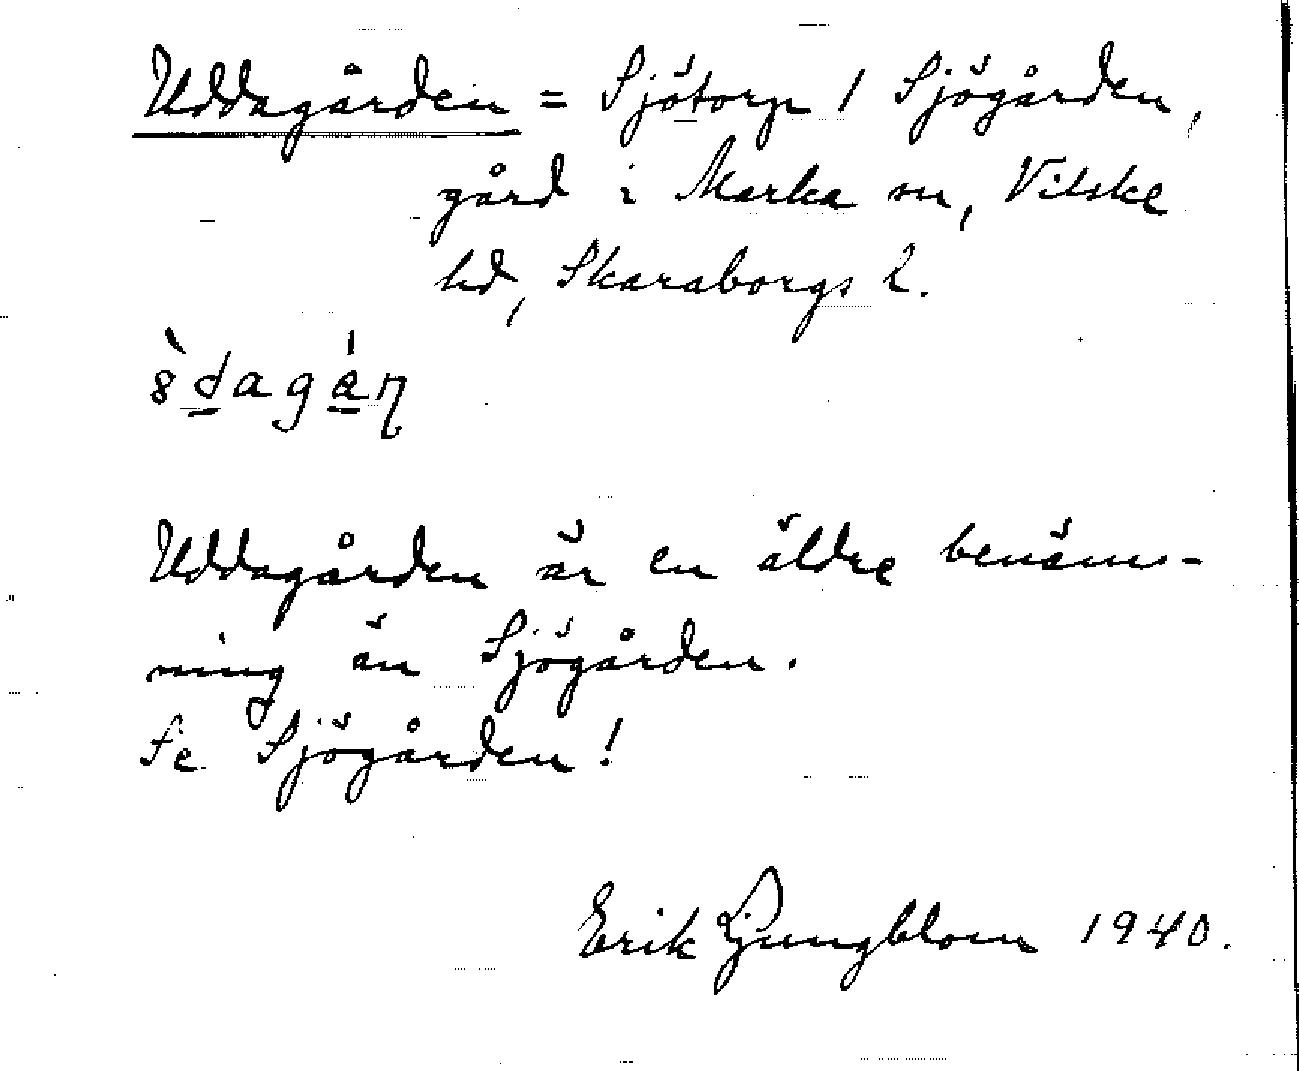 Uddagården = Sjötorp / Sjögården,
gård i Marka sn, Vilske
hd, Skaraborgs l.
Uddagården är en äldre benäm-
ning än Sjögården.
Se Sjögården!
Erik Ljungblom 1940.